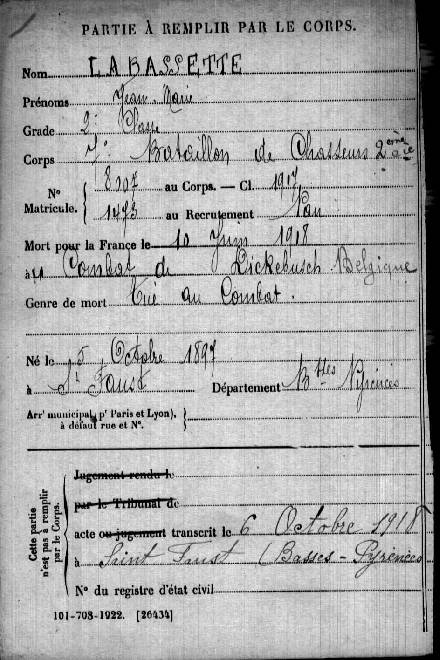 PARTIE À REMPLIR PAR LE CORPS.
Nom LABASSETTE
Prénoms Jean Marie
Grade 2e Classe
Corps 7e Bataillon de Chasseurs 2eme Cie
N° Matricule. { 8107 au Corps. — Cl. 1917
1473 au Recrutement Pau
Mort pour la France le 10 Juin 1918
à u Combat de Dickebusch Belgique
Genre de mort Tué au Combat.
Né le 5 Octobre 1897
à St Faust Département Bsses Pyrénées
Arrt municipal (pr Paris et Lyon),
à défaut rue et N°.
Cette partie n'est pas à remplir par le Corps.
Jugement rendu le
par le Tribunal de
acte ou jugement transcrit le 6 Octobre 1918
à Saint Faust (Basses-Pyrénées
N° du registre d'état civil
101-708-1922. [26434]